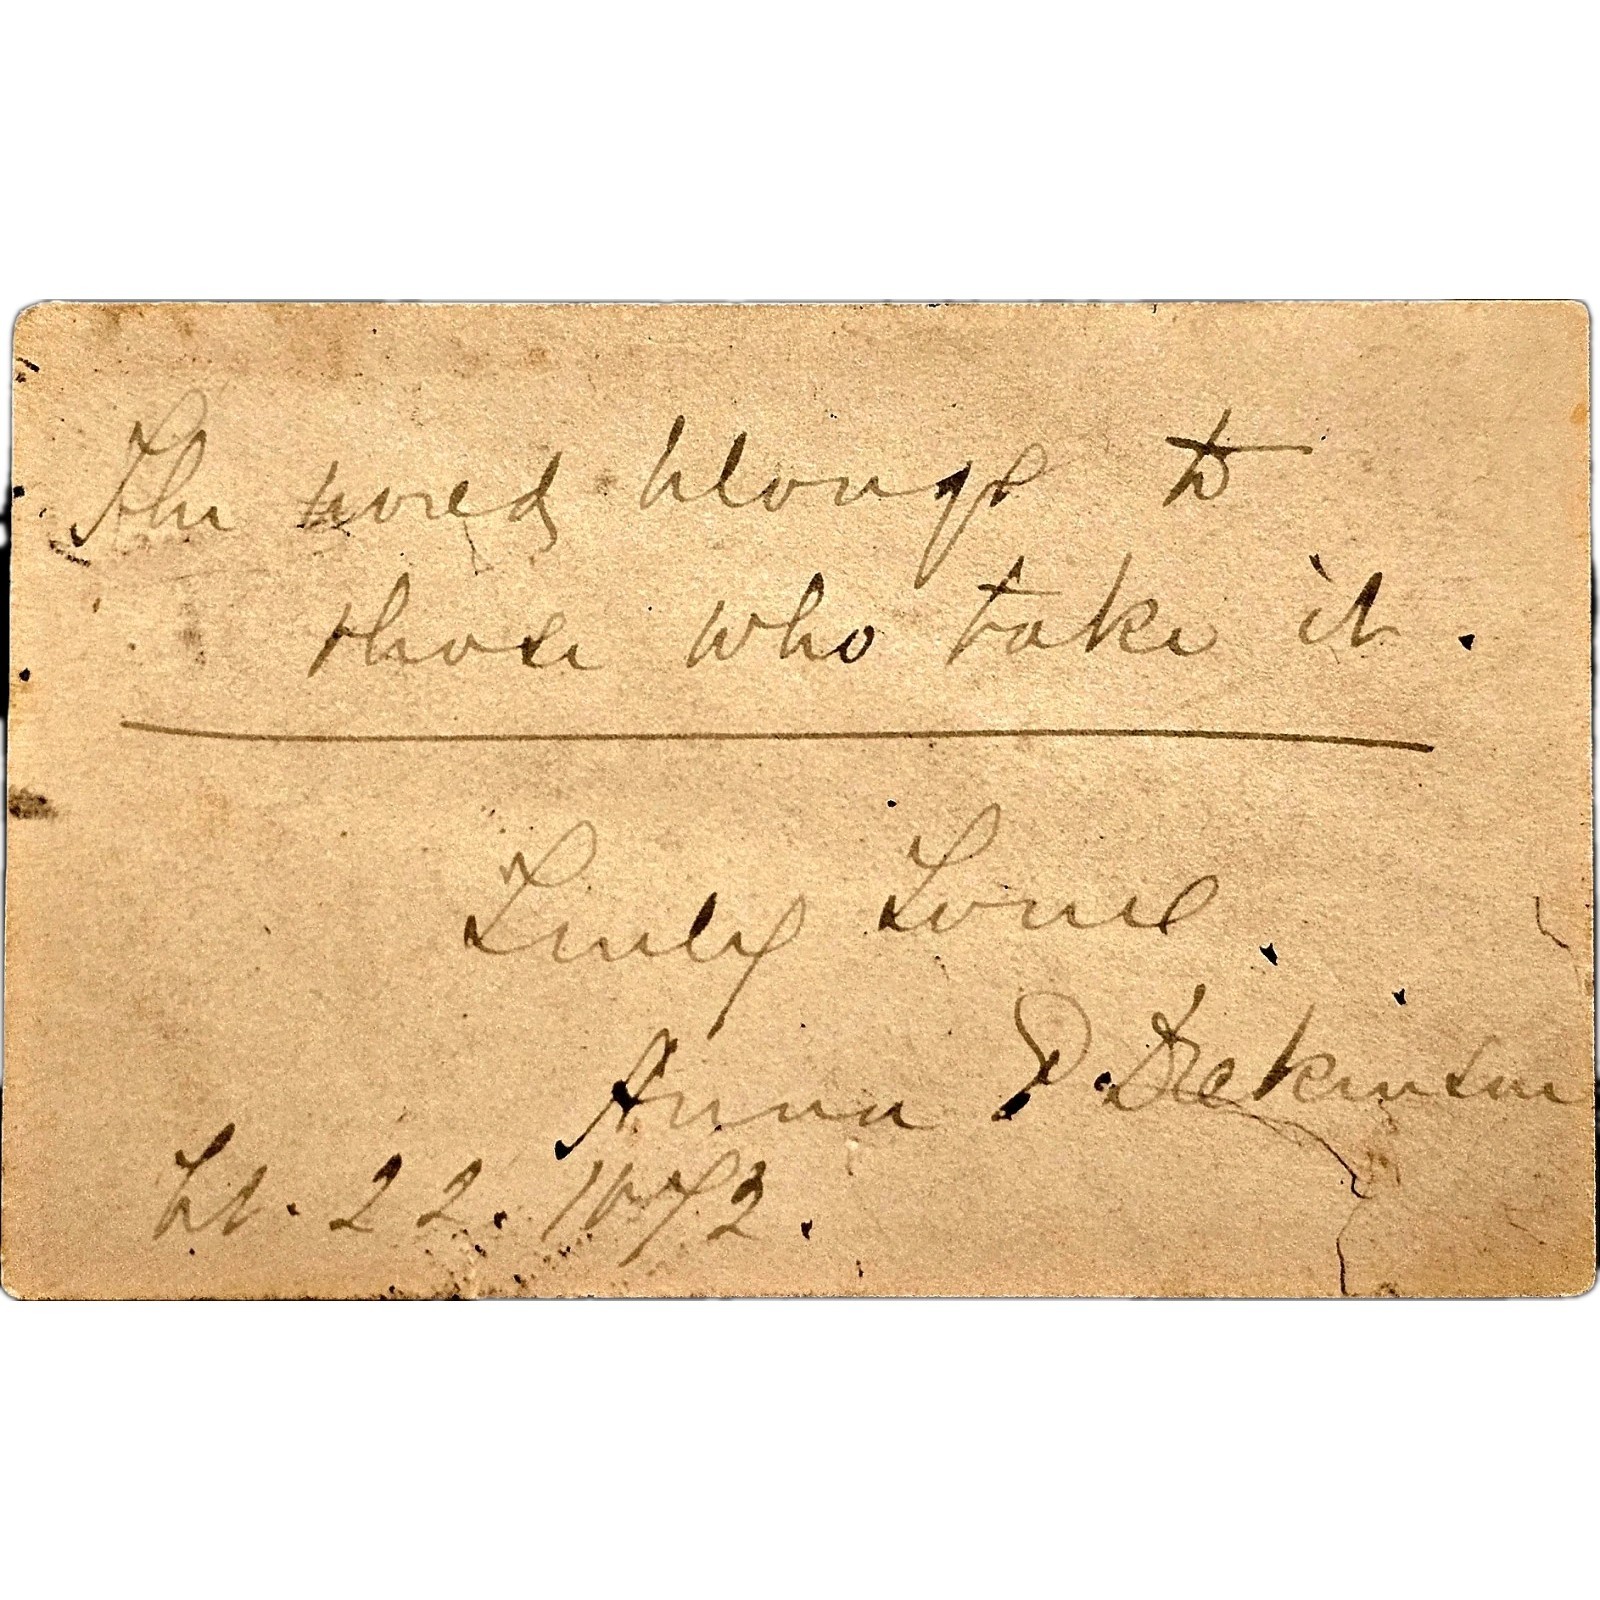 The world belongs to
those who take it.
Truly Yours,
Anna E. Dickinson
22. 1872.